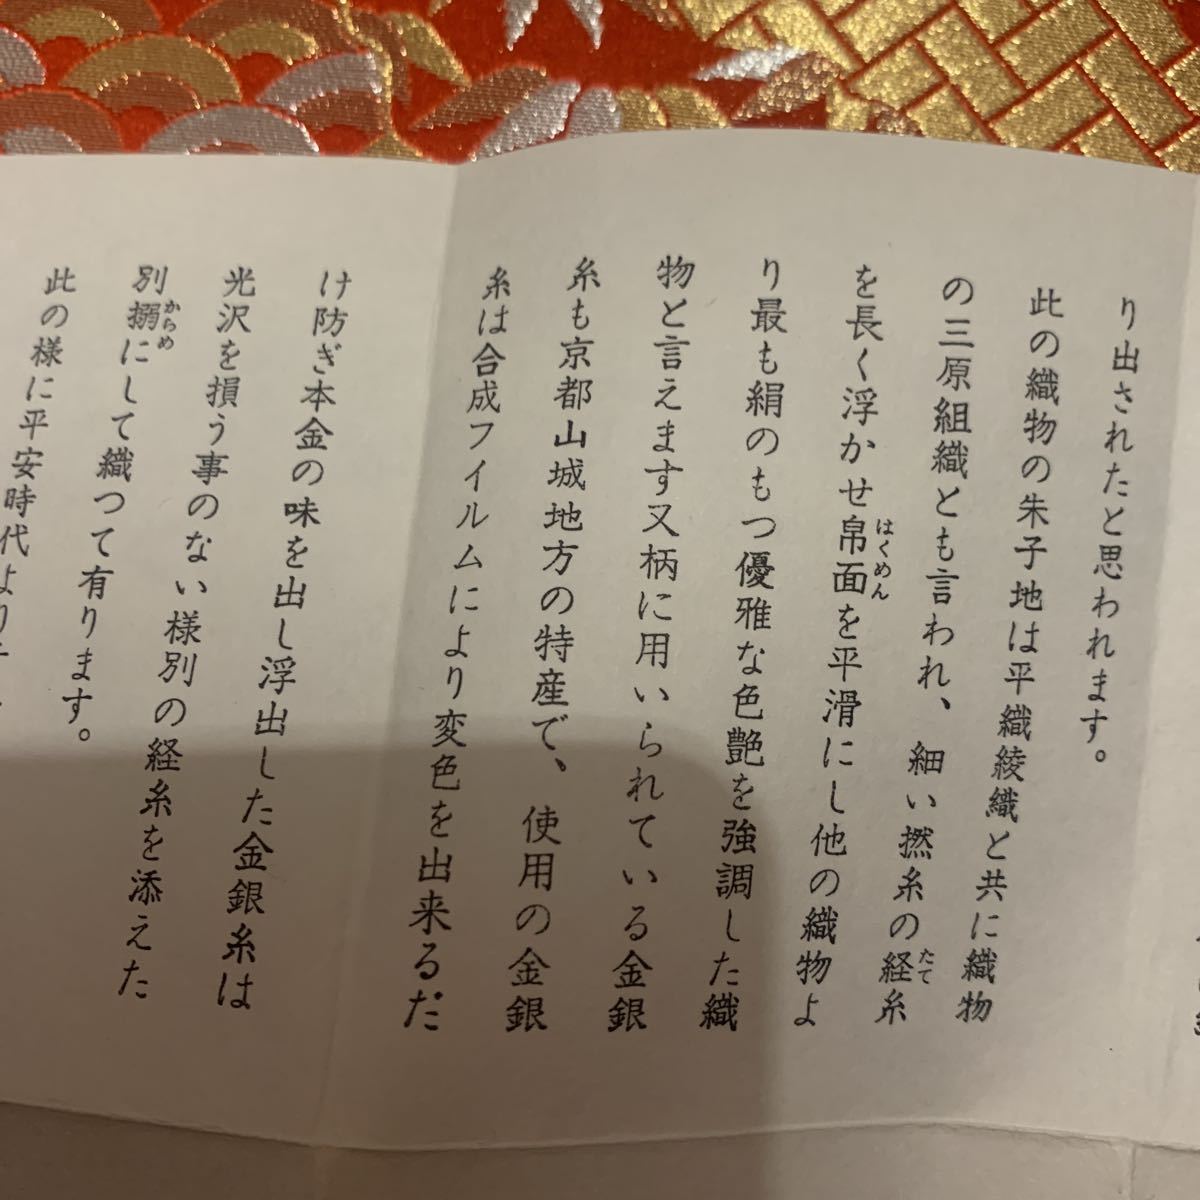 り出されたと思われます。
此の織物の朱子地は平織綾織と共に織物
の三原組織とも言われ、細い撚糸の経糸
を長く浮かせ帛面を平滑にし他の織物よ
り最も絹のもつ優雅な色艶を強調した織
物と言えます又柄に用いられている金銀
糸も京都山城地方の特産で、使用の金銀
糸は合成フイルムにより変色を出来るだ
け防ぎ本金の味を出し浮出した金銀糸は
光沢を損う事のない様別の経糸を添えた
別搦にして織つて有ります。
此の様に平安時代より